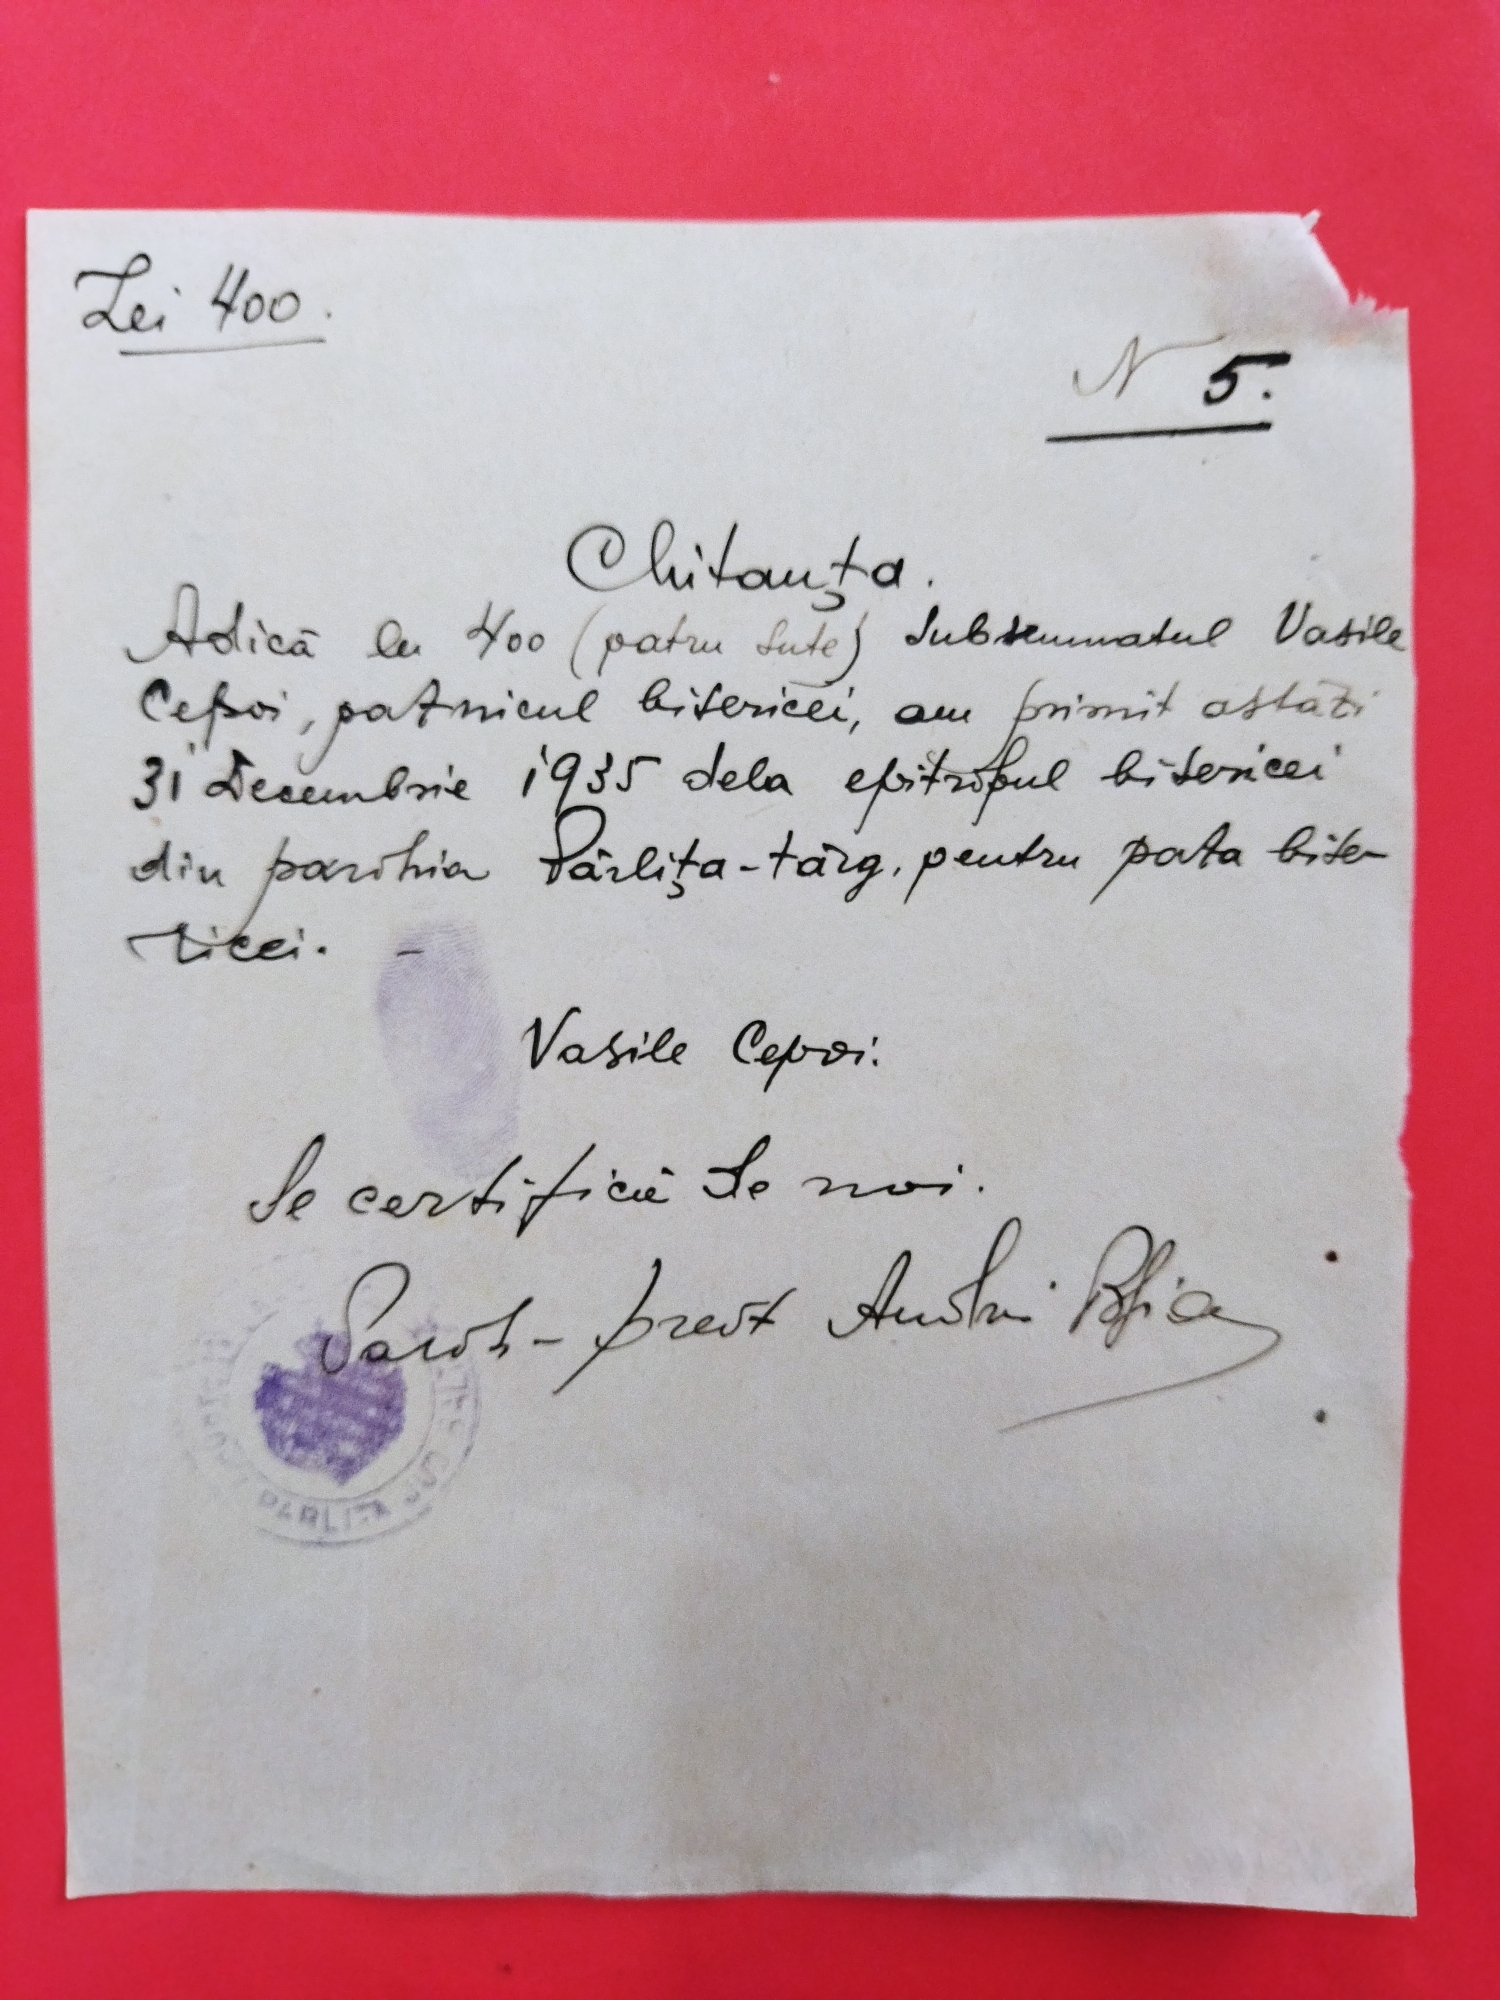 Lei 400.
N 5.
Chitanţa.
Adică lei 400 (patru sute) subsemnatul Vasile
Cepoi, paznicul bisericei, am primit astăzi
31 Decembrie 1935 dela epitropul bisericei
din parohia Pârliţa-târg, pentru paza bise-
ricei. -
Vasile Cepoi.
Se certifică de noi.
Paroh- preot Andrei
PARLITA